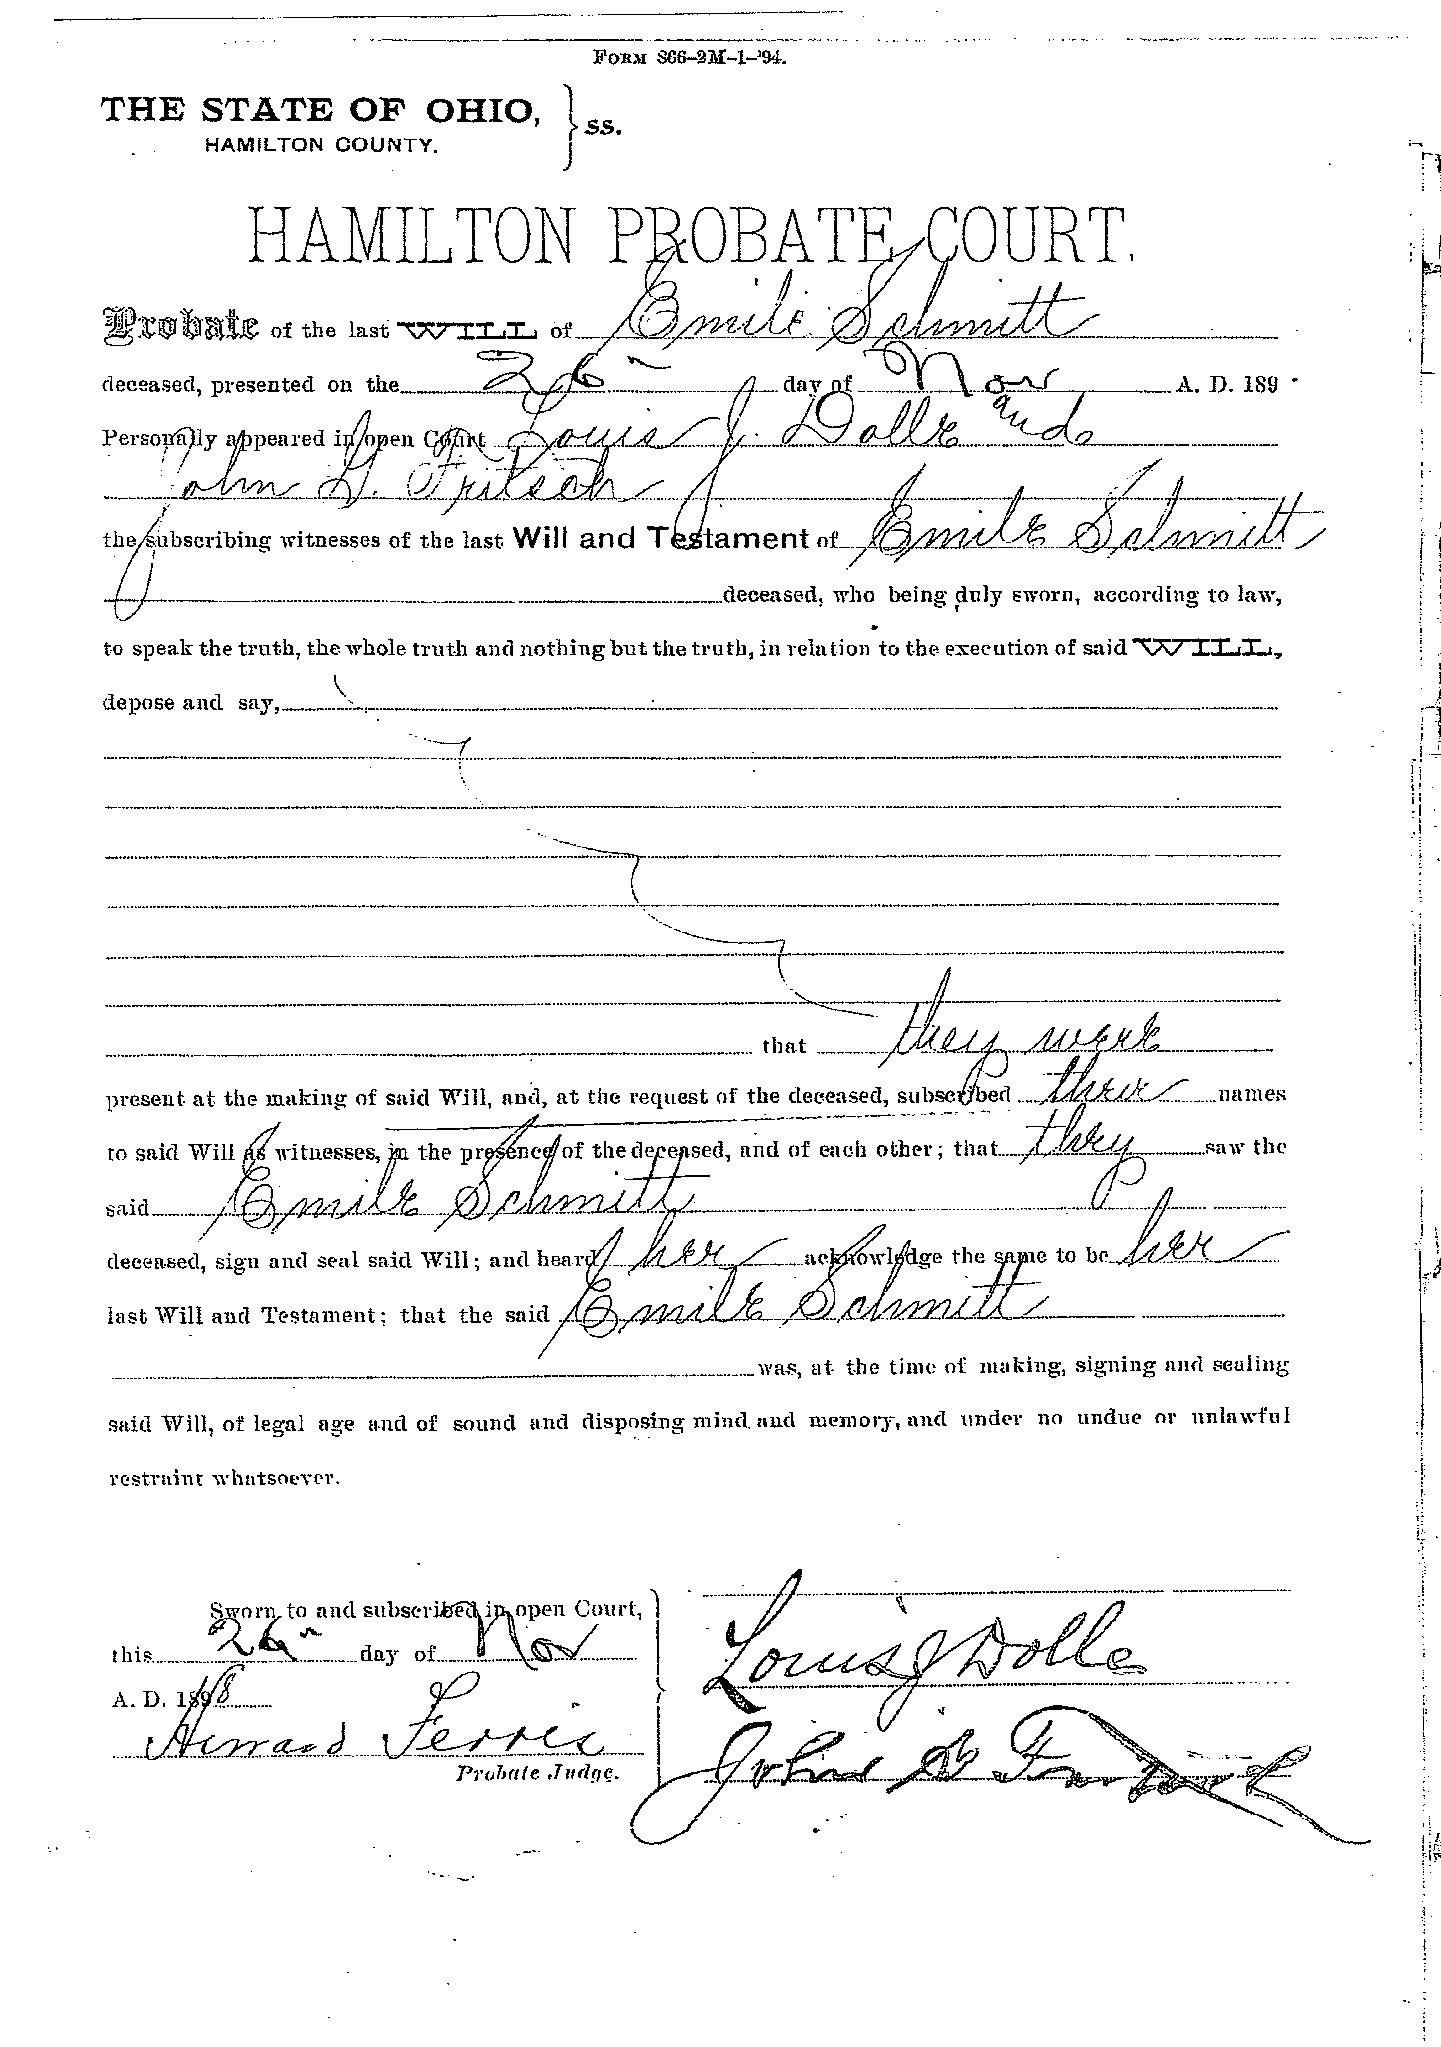 FORM 866-2M-1-'94.
THE STATE OF OHIO, } ss.
HAMILTON COUNTY.
HAMILTON PROBATE COURT.
Probate of the last WILL of Emile Schmitt
deceased, presented on the 26" day of Nov A. D. 189
Personally appeared in open Court Louis J. Dolle and
John G. Fritsch
the subscribing witnesses of the last Will and Testament of Emile Schmitt
deceased, who being duly sworn, according to law,
to speak the truth, the whole truth and nothing but the truth, in relation to the execution of said WILL,
depose and say,
that they were
present at the making of said Will, and, at the request of the deceased, subscribed their names
to said Will as witnesses, in the presence of the deceased, and of each other; that they saw the
said Emile Schmitt
deceased, sign and seal said Will; and heard her acknowledge the same to be her
last Will and Testament; that the said Emile Schmitt
was, at the time of making, signing and sealing
said Will, of legal age and of sound and disposing mind and memory, and under no undue or unlawful
restraint whatsoever.
Sworn to and subscribed in open Court,
this 26" day of Nov
A. D. 1898
Howard Ferris
Probate Judge.
Louis J Dolle
John G Fritsch